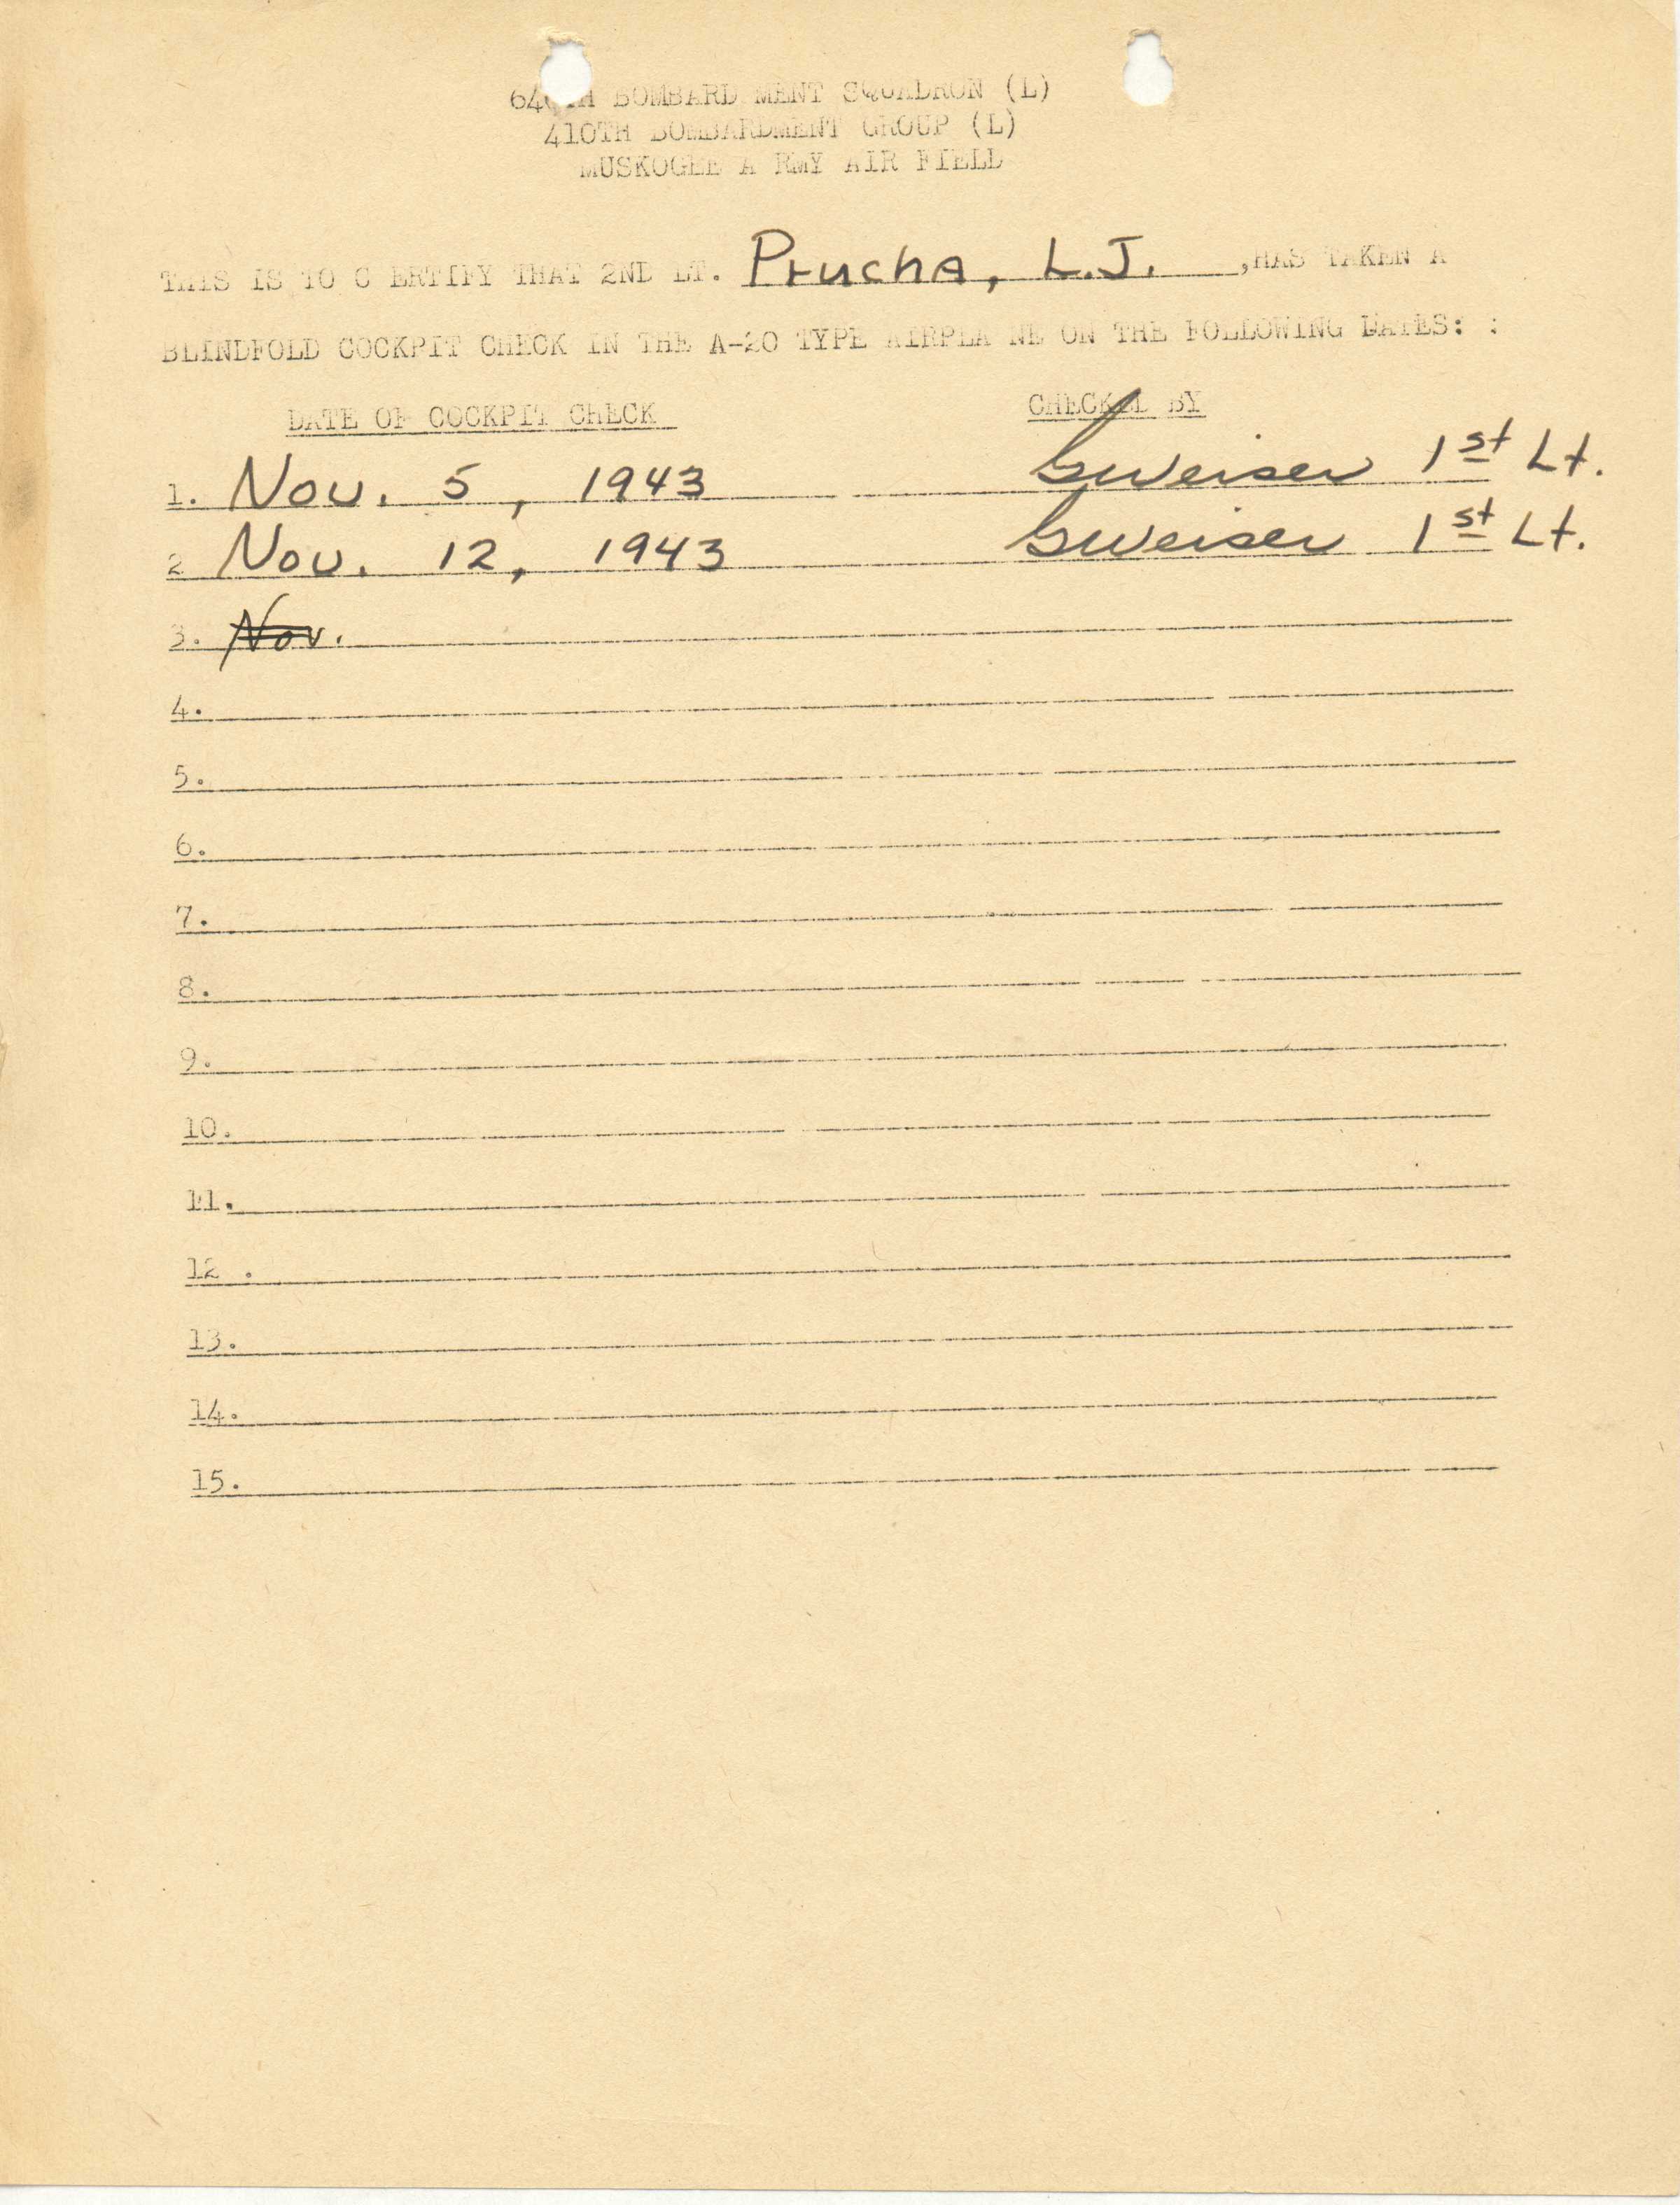 640TH BOMBARD MENT SQUADRON (L)
410TH BOMBARDMENT GROUP (L)
MUSKOGEE A RMY AIR FIELD
THIS IS TO C ERTIFY THAT 2ND LT. Prucha, L.J. ,HAS TAKEN A
BLINDFOLD COCKPIT CHECK IN THE A-20 TYPE AIRPLA NE ON THE FOLLOWING DATES: :
DATE OF COCKPIT CHECK CHECKED BY
1. Nov. 5, 1943 Gweiser 1st Lt.
2 Nov. 12, 1943 Gweiser 1st Lt.
3. Nov.
4.
5.
6.
7.
8.
9.
10.
11.
12 .
13.
14.
15.